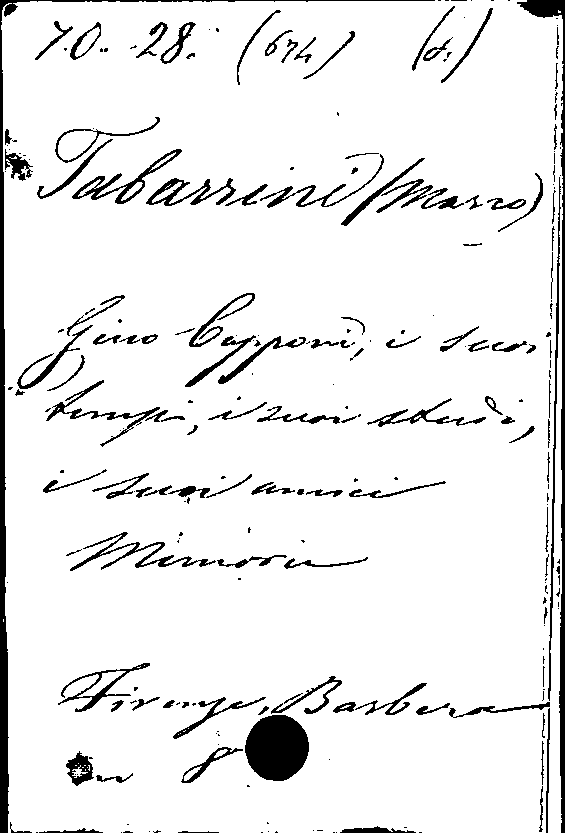 70. 28. (674) (d.)
Tabarrini (Marco)
Gino Capponi, i suoi
tempi, i suoi studi,
i suoi amici
Memorie
Firenze, Barbera
in 8°